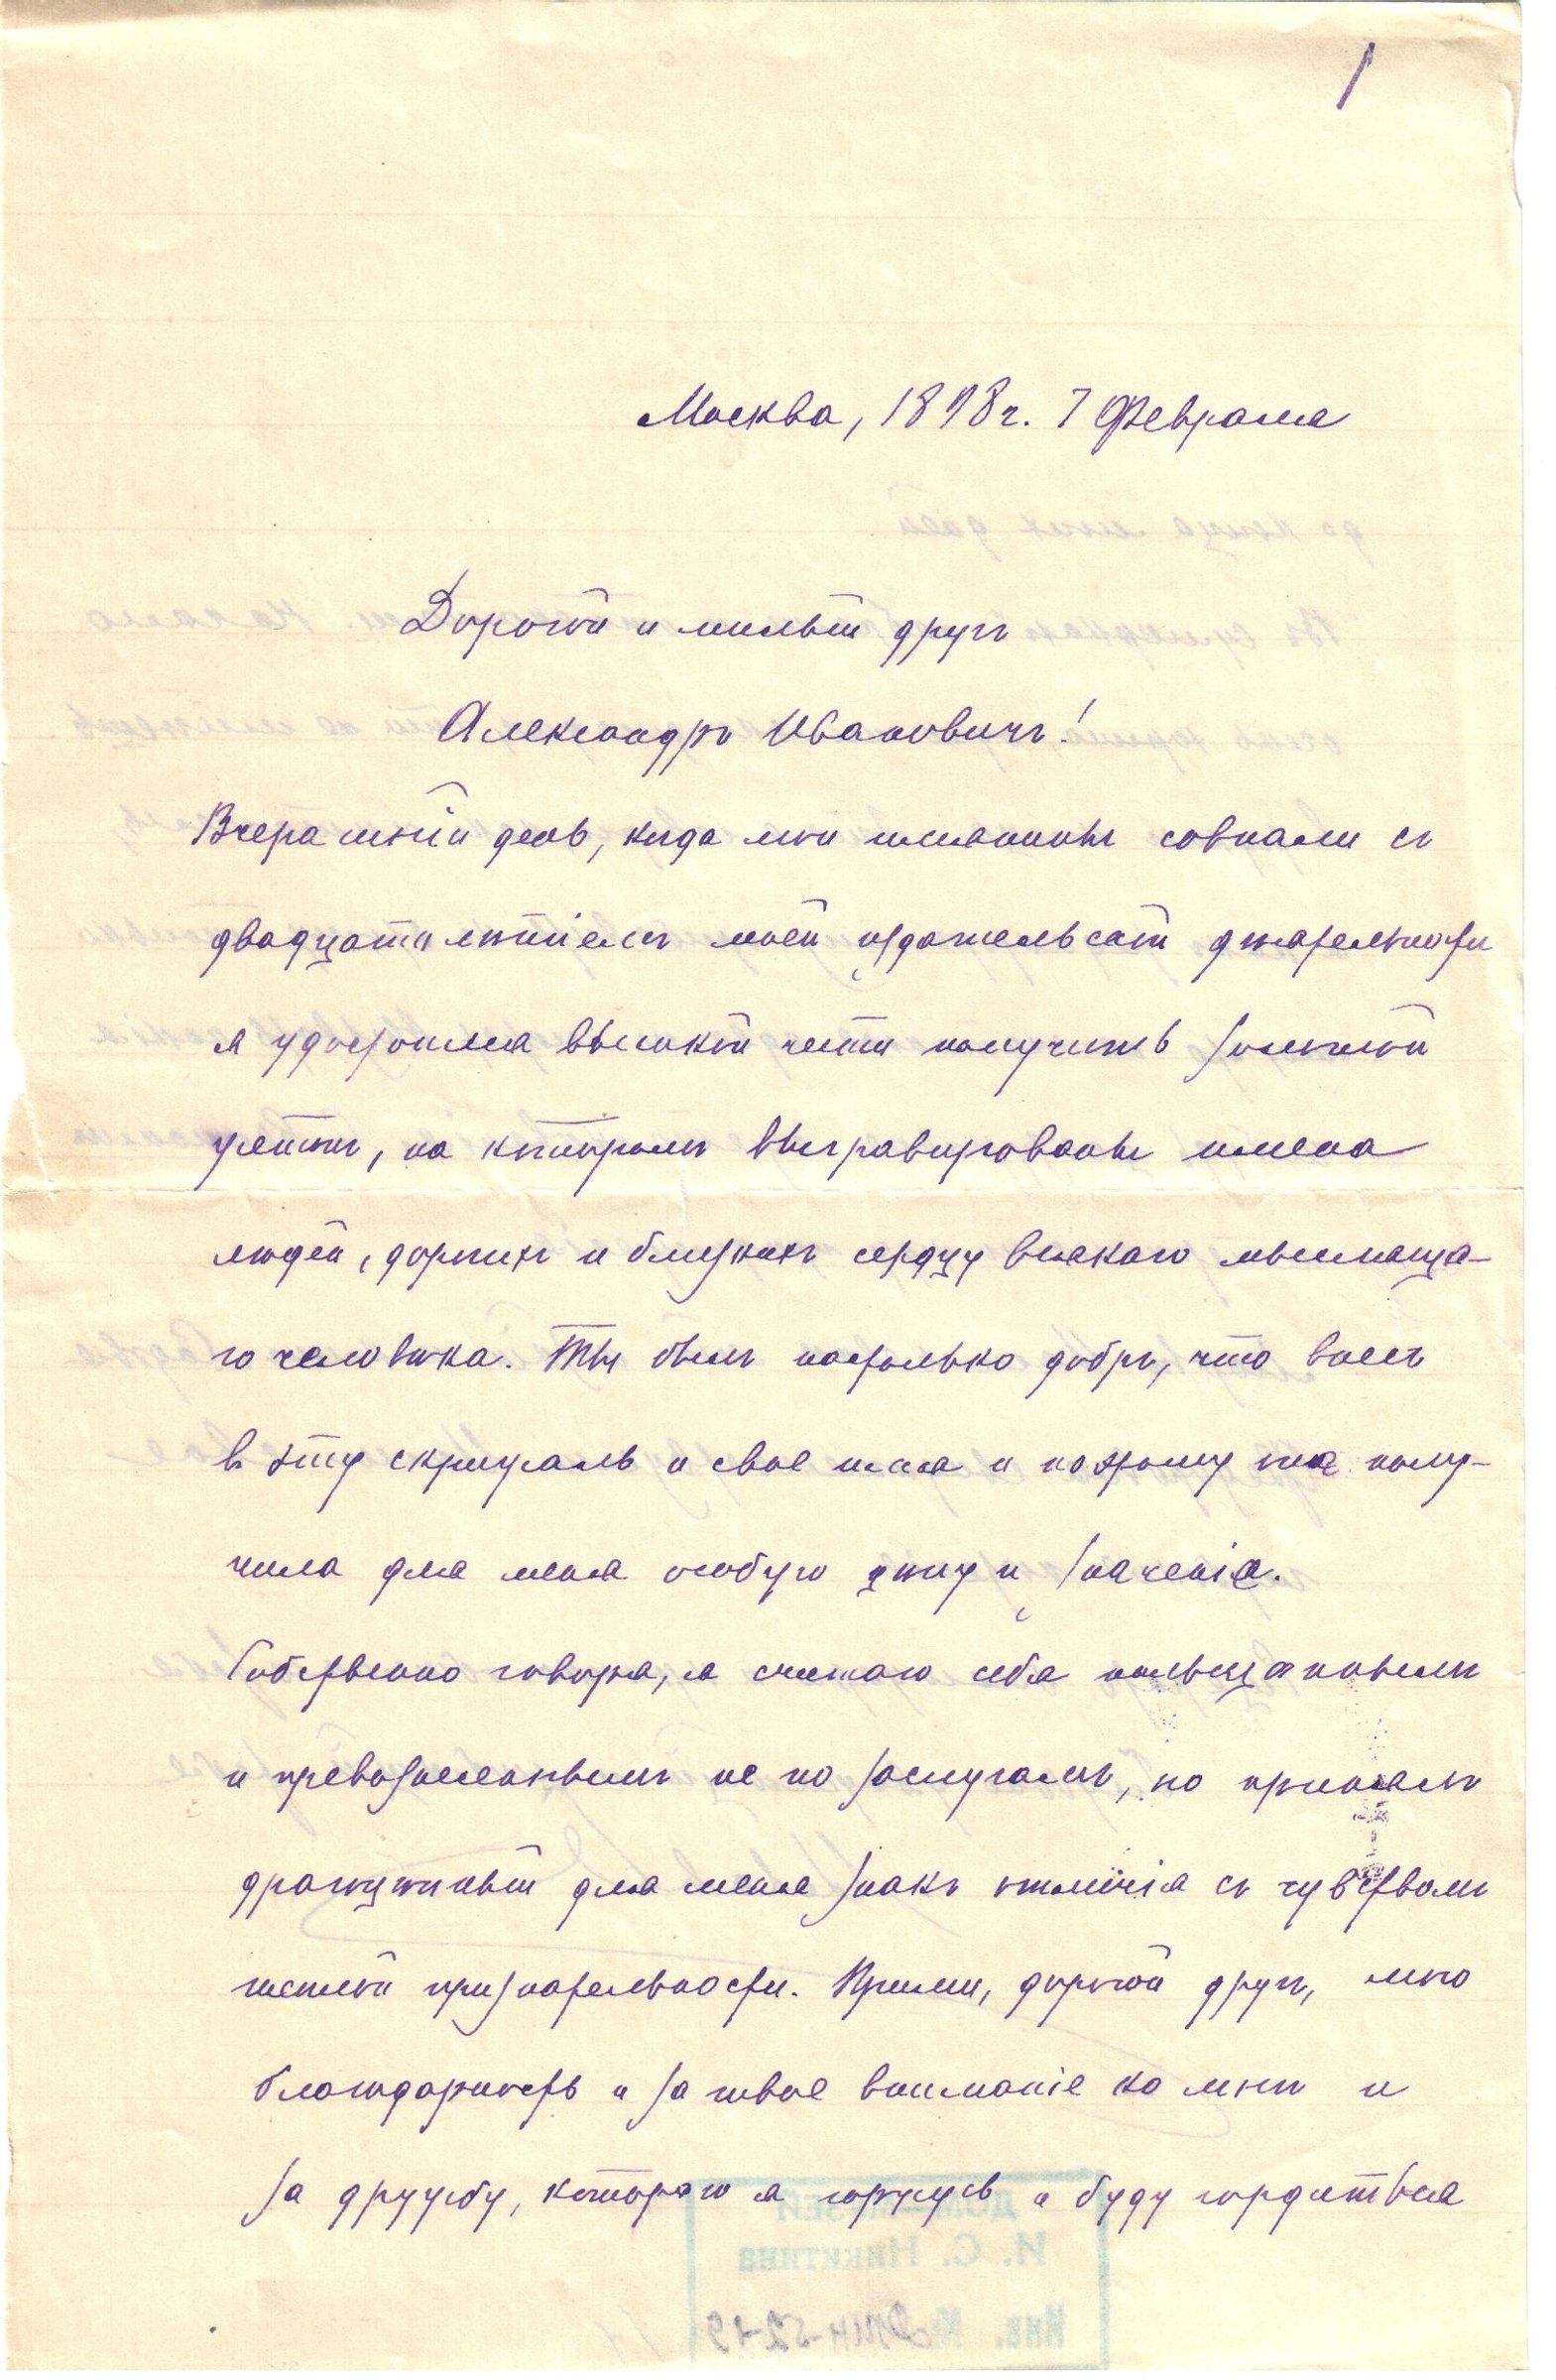 1
Москва, 1898 г. 7 Февраля
Дорогой и милый другъ
Александръ Ивановичъ!
Вчерашній день, когда мои именины совпали съ
двадцатилѣтіемъ моей издательской дѣятельности
я удостоился высокой чести получить золотой
жетонъ, на которомъ выгравированы имена
людей, дорогихъ и близкихъ сердцу всякаго мысляща-
го человѣка. Ты былъ настолько добръ, что внесъ
въ эту скрижаль и свое имя и поэтому она полу-
чила для меня особую цѣну и значеніе.
Собственно говоря, я считаю себя польщеннымъ
и превознесеннымъ не по заслугамъ, но принялъ
драгоцѣнный для меня знакъ отличія съ чувствомъ
теплой признательности. Прими, дорогой другъ, мою
благодарность и за твое вниманіе ко мнѣ и
за дружбу, которою я горжусь и буду гордиться
И. С. Никитина